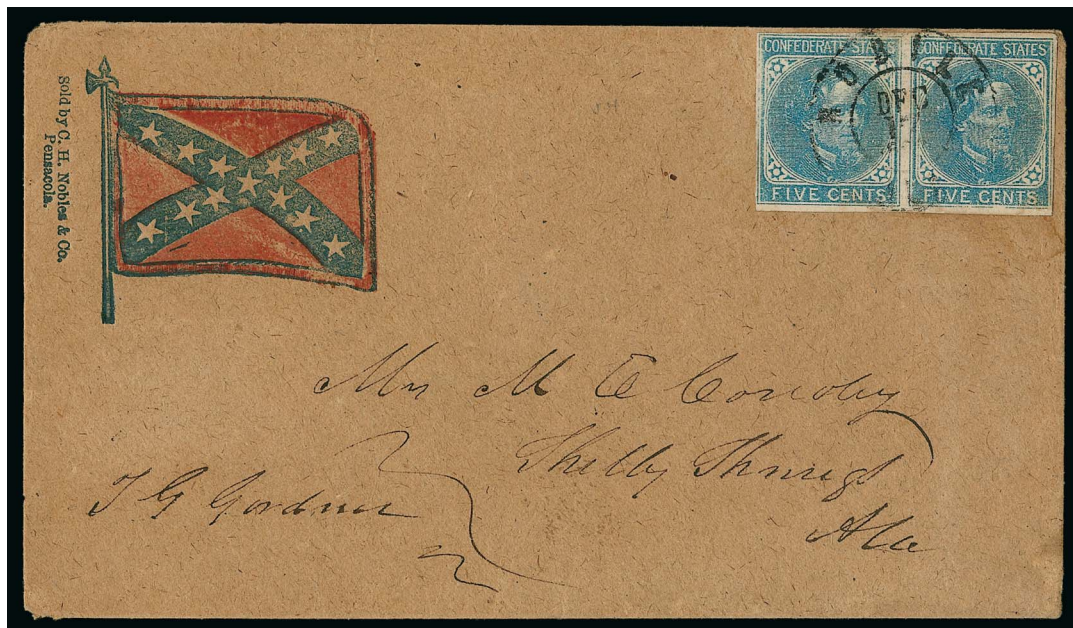 Sold by C. H. Nobles & Co.
Pensacola.
CONFEDERATE STATES
FIVE CENTS
CONFEDERATE STATES
FIVE CENTS
MOBILE
DEC
Mrs M E
Shelby
Ala
T G Gardner